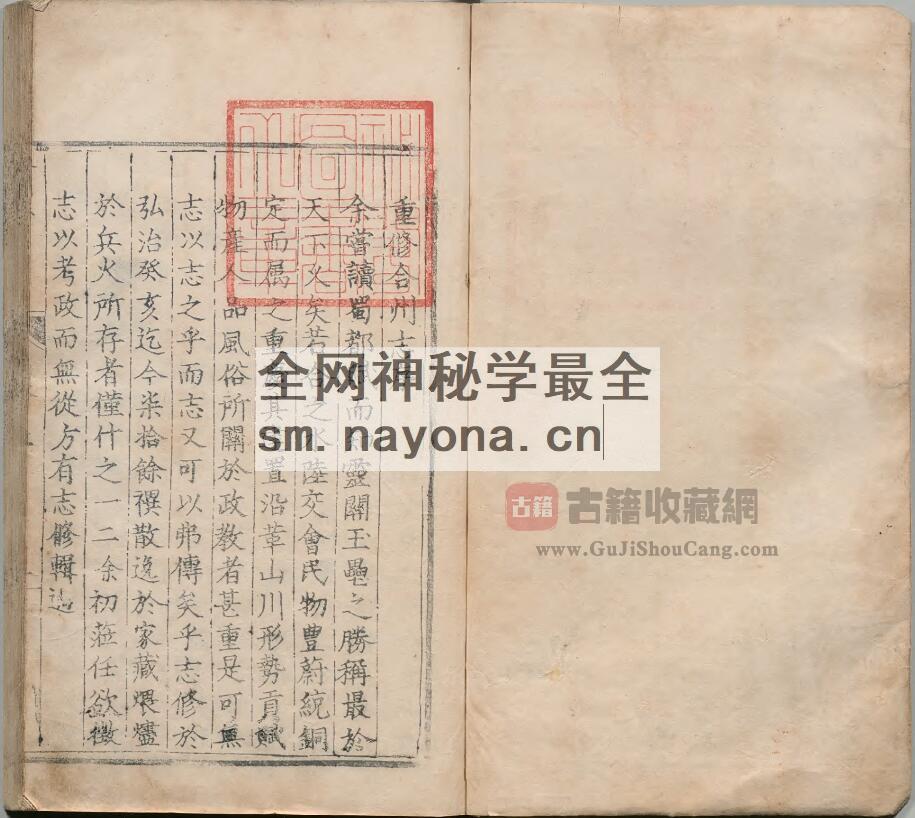 重修合州志
余嘗讀蜀都而靈關玉壘之勝稱最於
天下久矣若合之水陸交會民物豊蔚統銅
定而属之重其置沿革山川形勢貢賦
物産人品風俗所關於政教者甚重是可無
志以志之乎而志又可以弗傳矣乎志修於
弘治癸亥迄今柒拾餘禩散逸於家藏煨燼
於兵火所存者僅什之一二余初蒞任欲徵
志以考政而無從方有志修輯
全网神秘学最全
sm.nayona.cn
古籍
古籍收藏網
www.GuJiShouCang.com